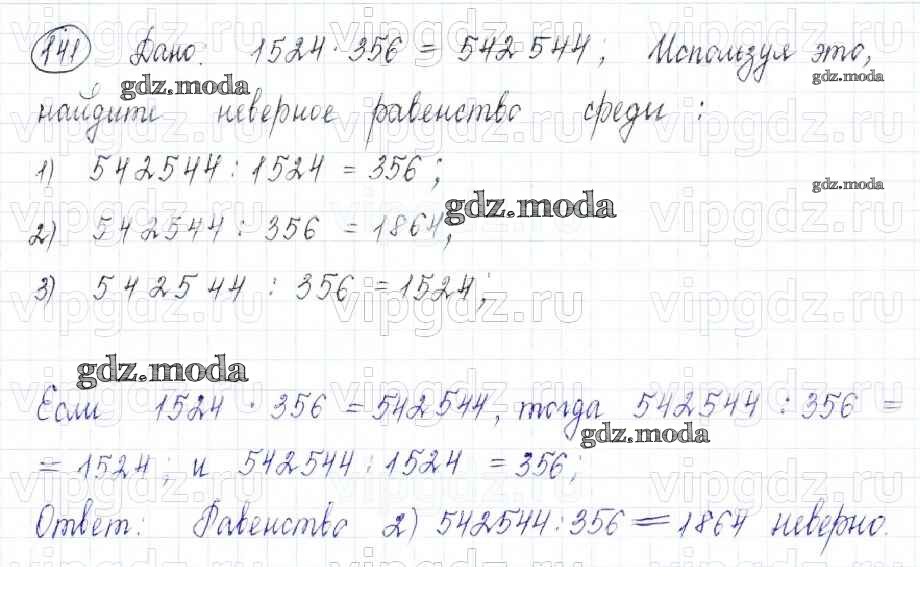 141 Дано: 1524 · 356 = 542 544; Используя это,
найдите неверное равенство среди:
1) 542544 : 1524 = 356;
2) 542544 : 356 = 1864;
3) 542544 : 356 = 1524;
Если 1524 · 356 = 542544, тогда 542544 : 356 =
= 1524; и 542544 : 1524 = 356;
Ответ: Равенство 2) 542544 : 356 = 1864 неверно.
gdz.moda
gdz.moda
gdz.moda
gdz.moda
gdz.moda
gdz.moda
vipgdz.ru